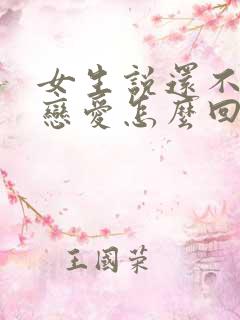 女生說還不
戀愛怎麼回
王國荣